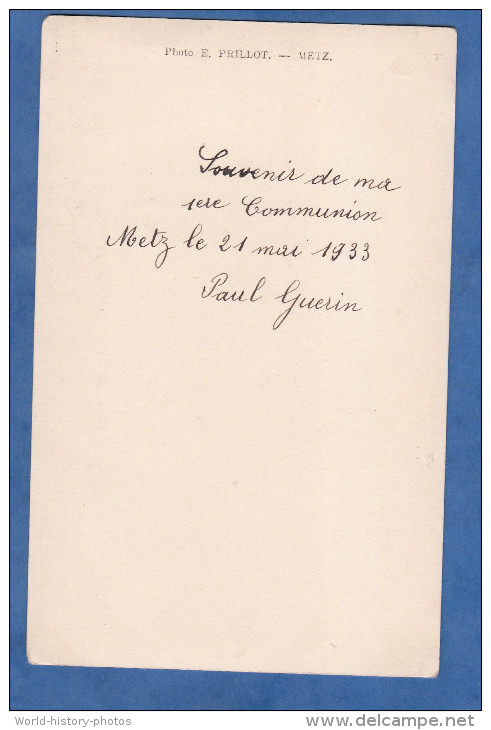 Photo E. PRILLOT. — METZ.
Souvenir de ma
1ere Communion
Metz le 21 mai 1933
Paul Guerin
World-history-photos
delcampe.net